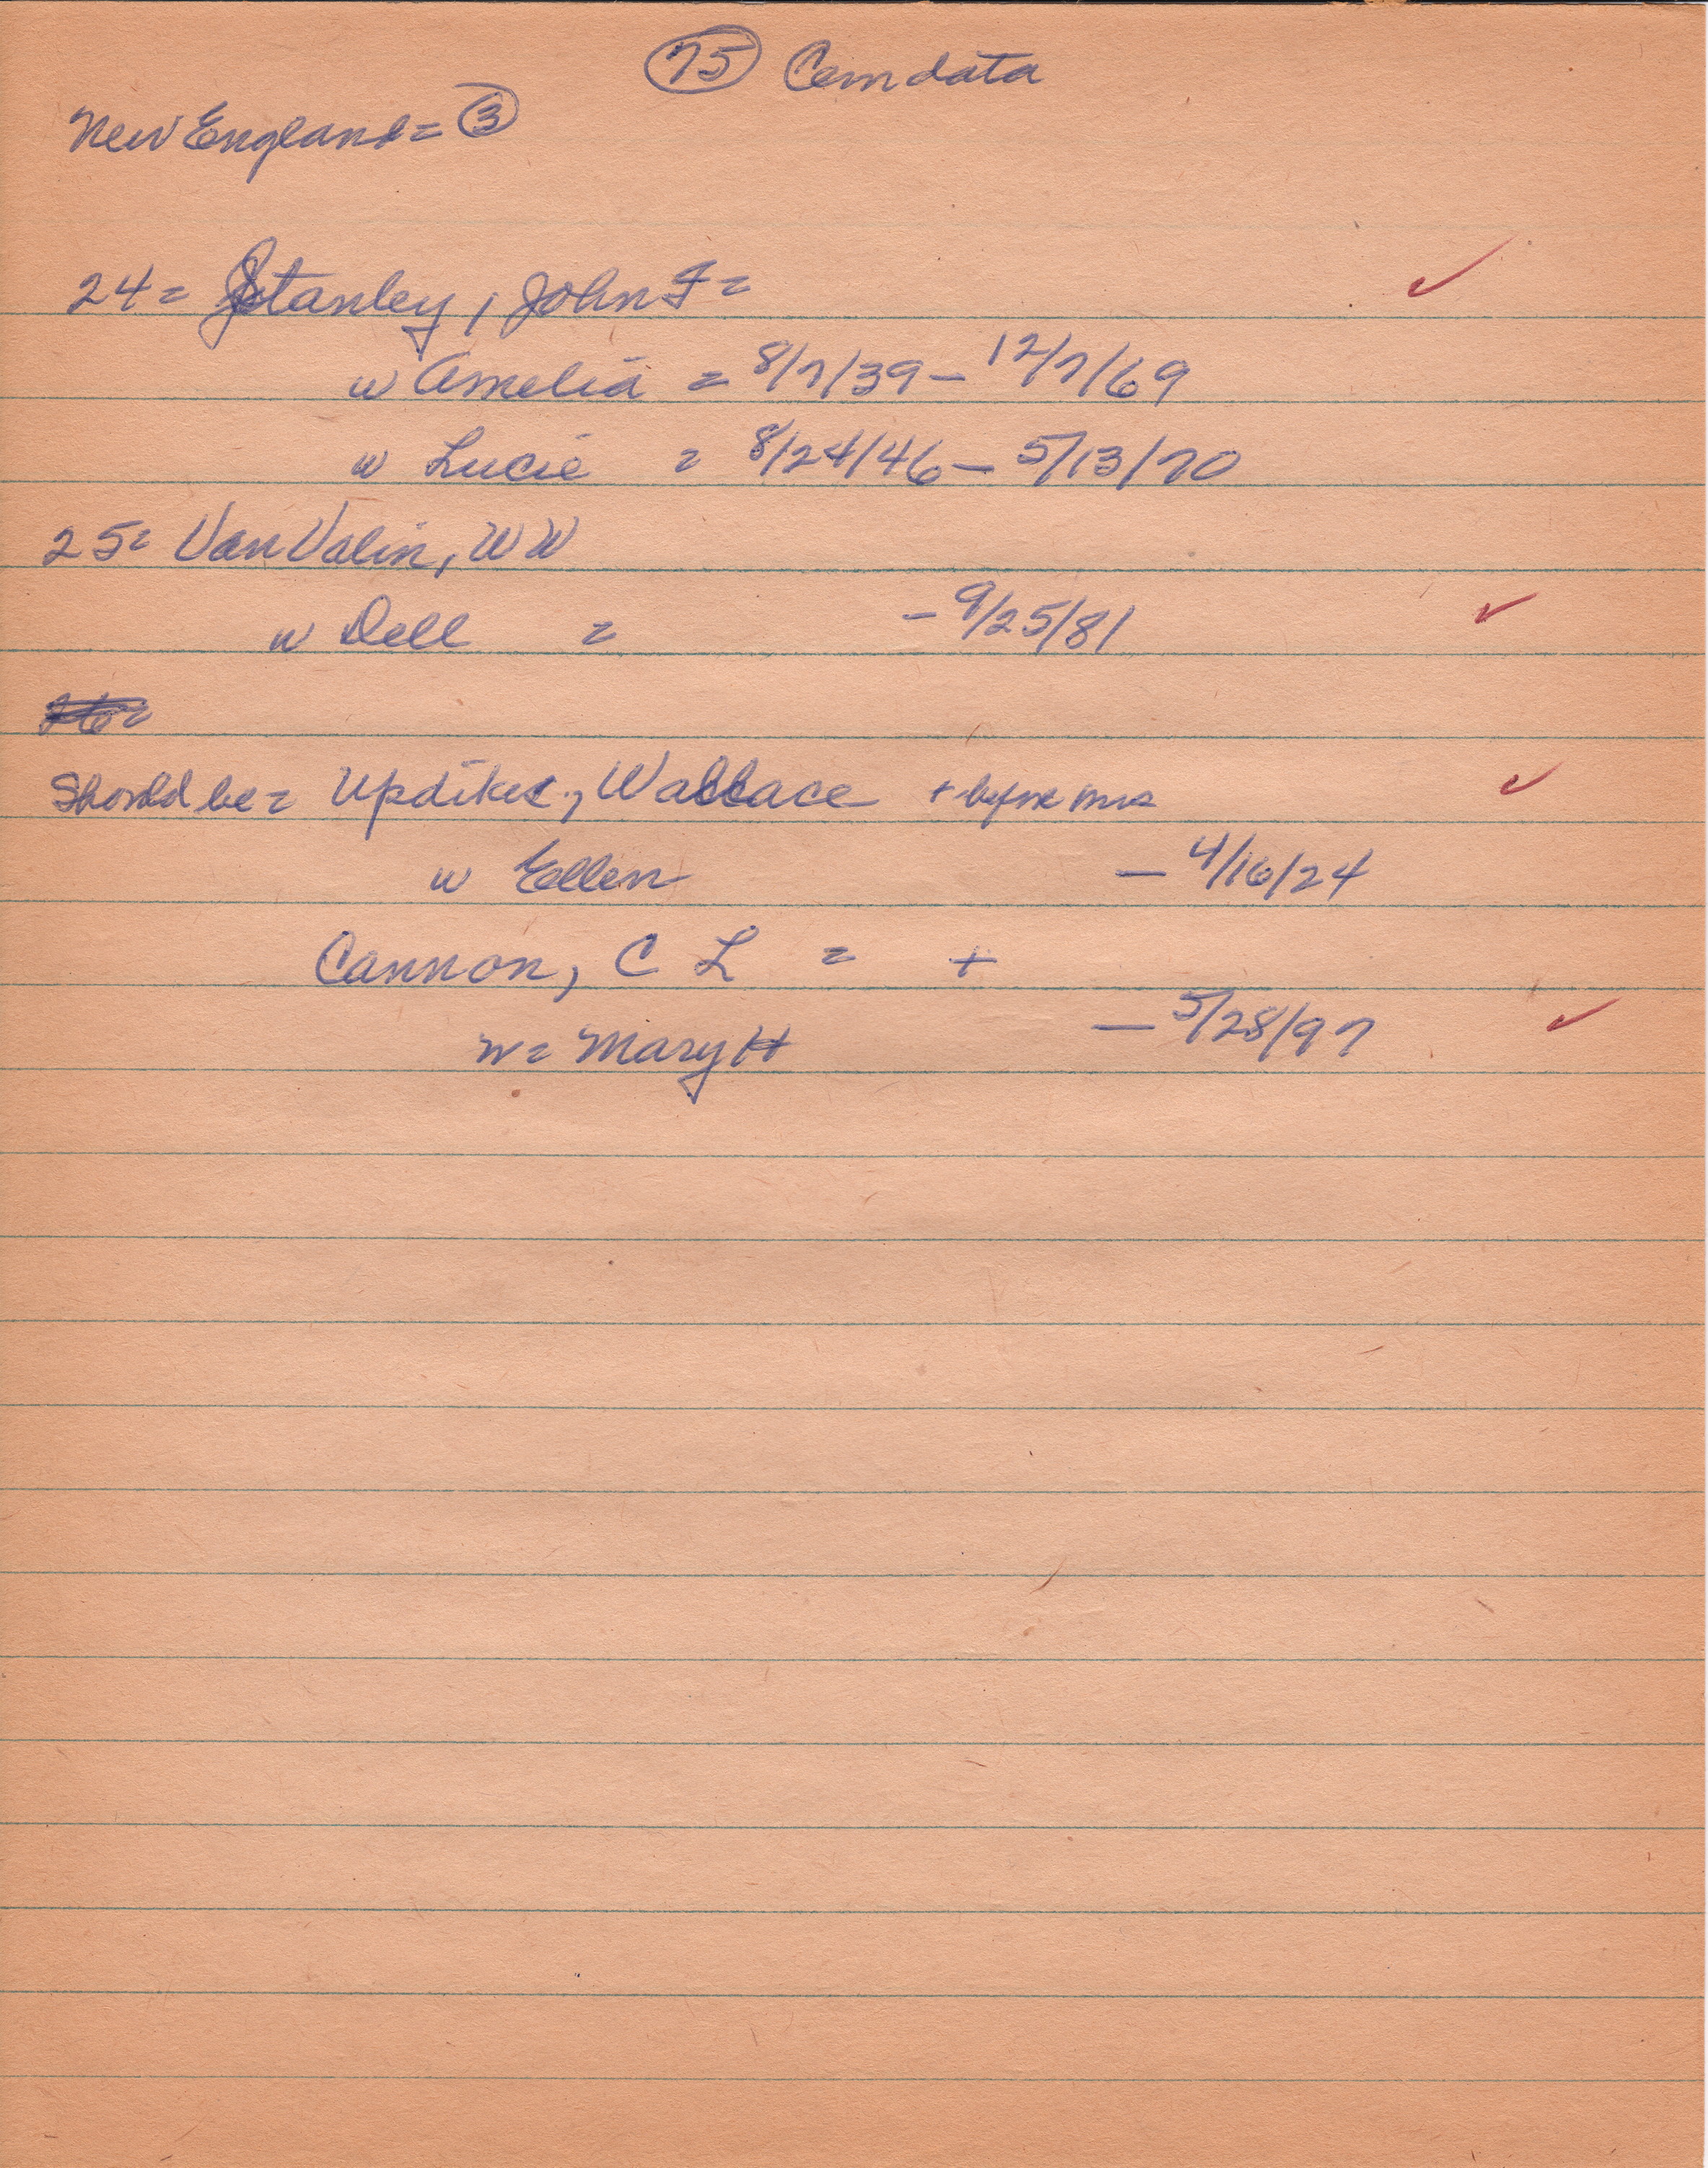 75 Cem data
New England = 3
24 = Stanley, John F =
w Amelia = 8/7/39 - 12/7/69
w Lucie = 8/24/46 - 5/13/70
25 = Van Valin, W W
w Dell = - 9/25/81
26 =
Should be = Updike, Wallace + before mrs
w Ellen - 4/16/24
Cannon, C L = +
w = Mary H - 5/28/97